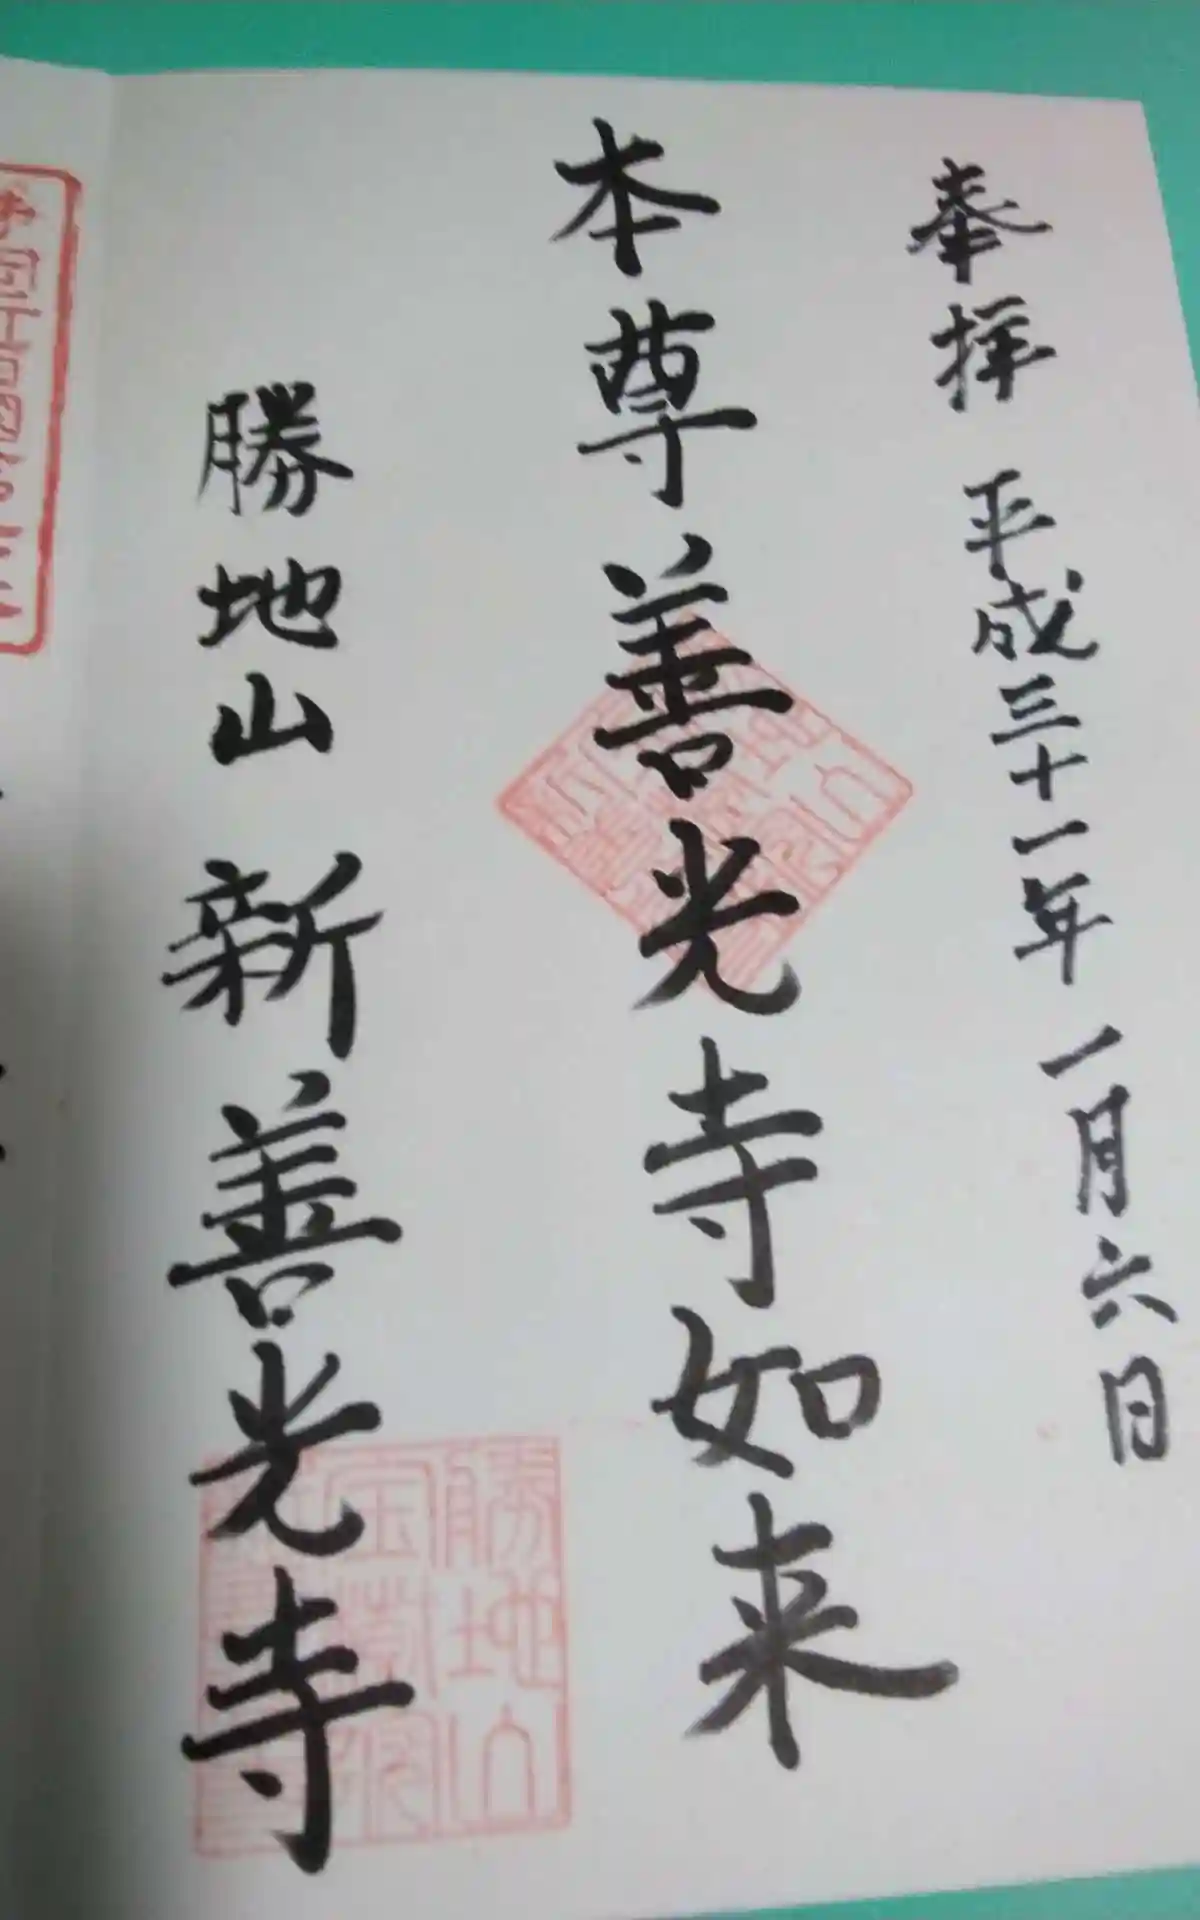 奉拝 平成三十一年 一月六日
本尊善光寺如来
勝地山 新善光寺
勝地山